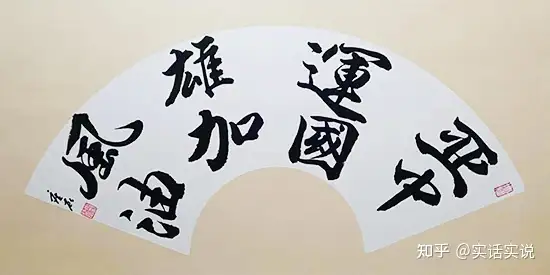 亚運雄風
中國加油
知乎 @实话实说